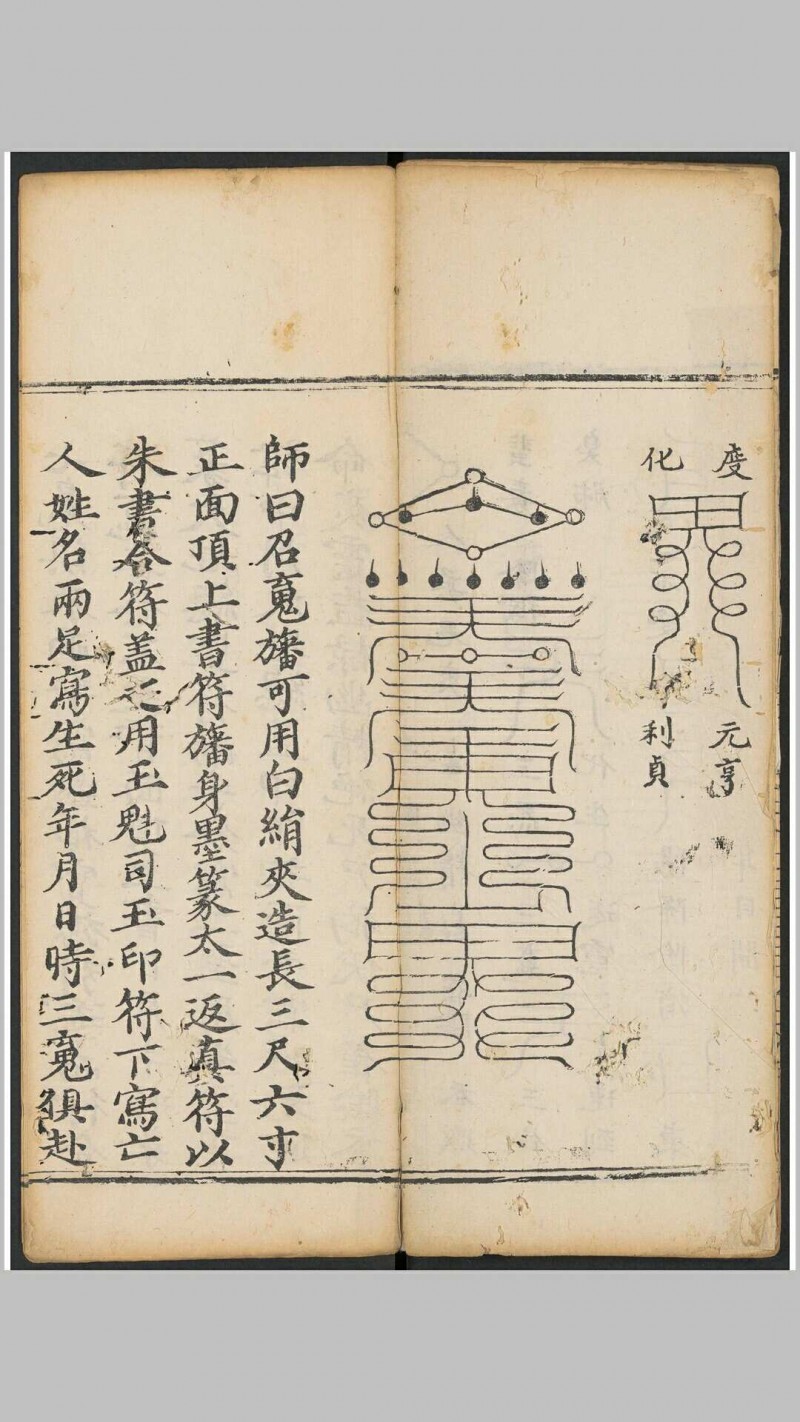 度
化
元亨
利貞
師曰召䰟旛可用白絹夾造長三尺六寸
正面頂上書符旛身墨篆太一返真符以
朱書合符盖之用玉魁司玉印符下寫亡
人姓名兩足寫生死年月日時三䰟俱赴